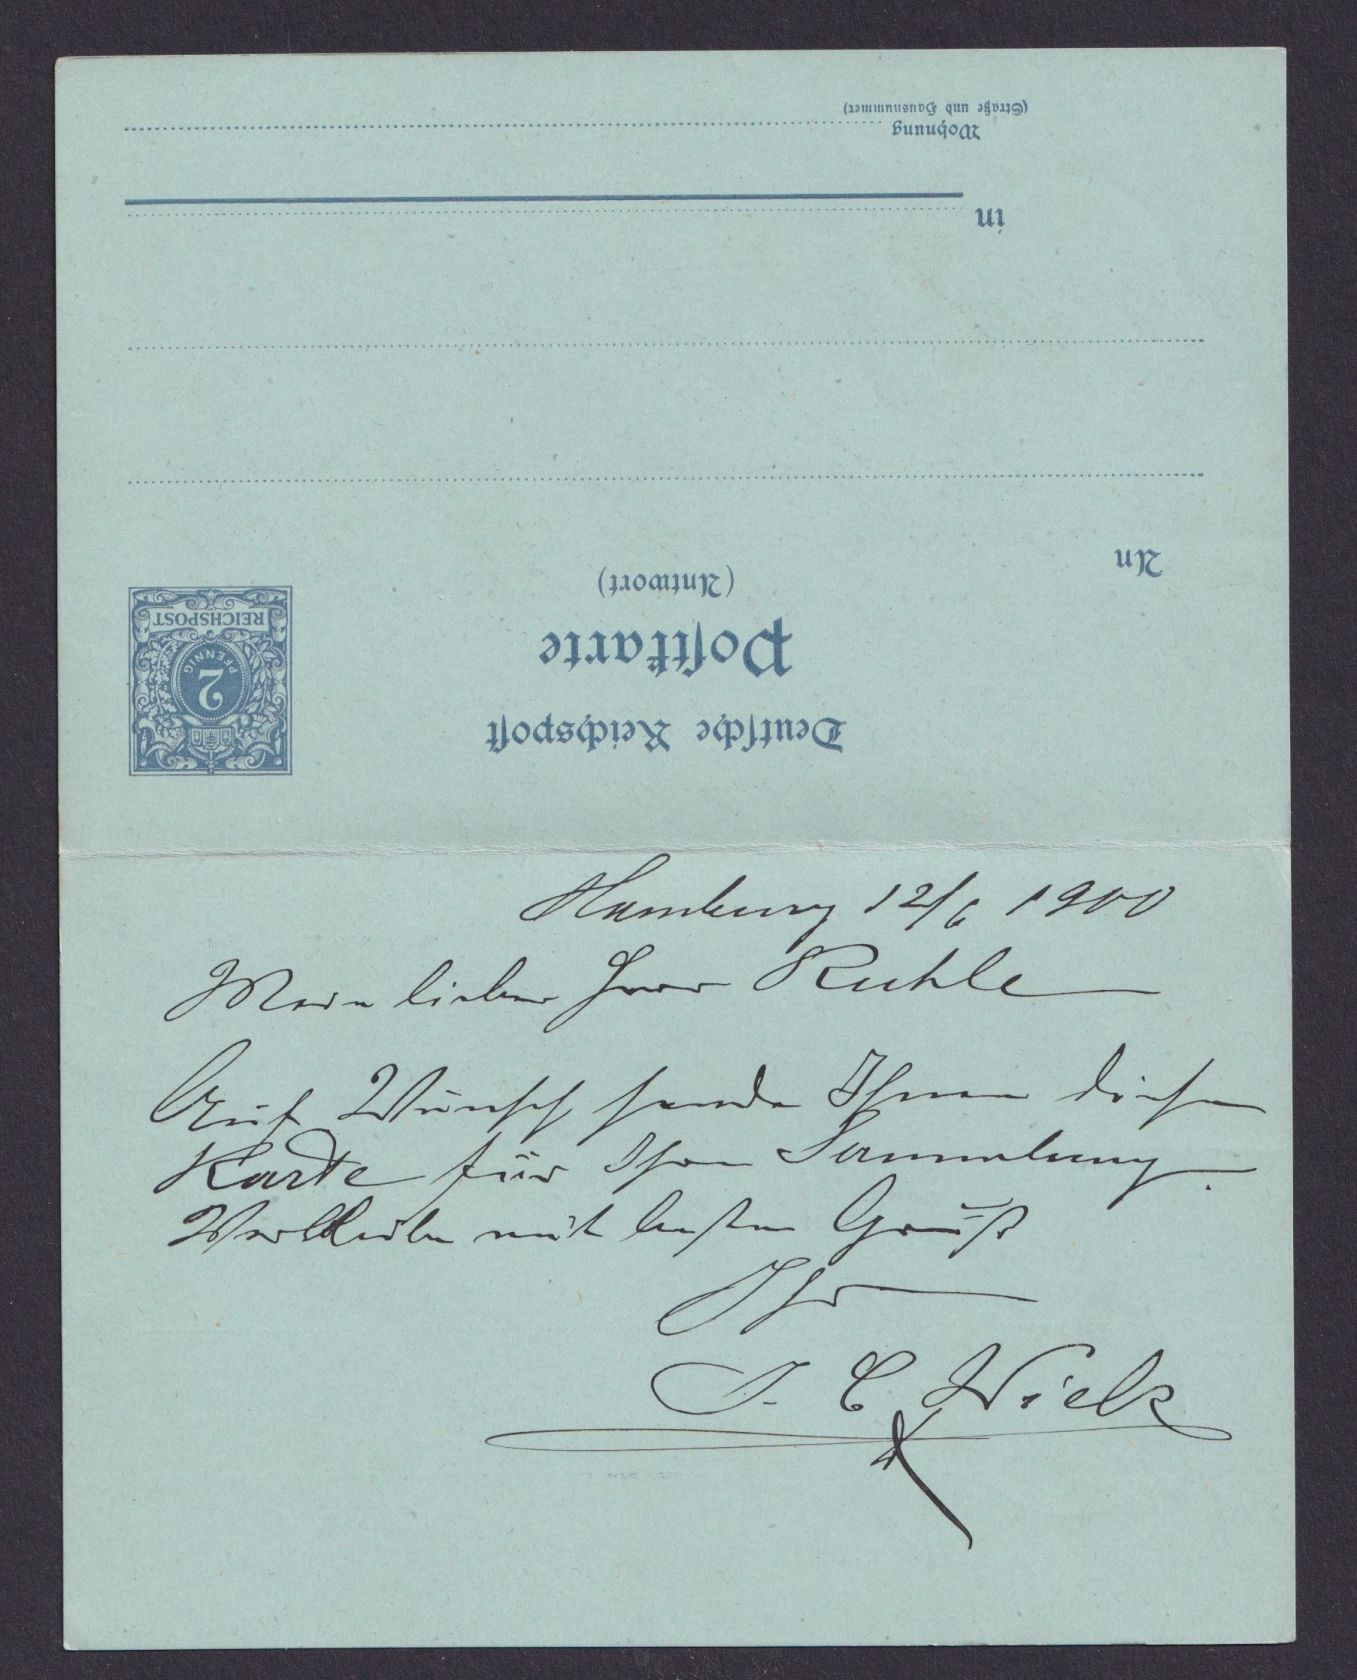 Deutsche Reichspost
Postkarte
(Antwort)
REICHSPOST
2
PFENNIG
An
in
Wohnung
(Straße und Hausnummer)
Hamburg 12/6 1900
Mein lieber Herr Ruhle
Auf Wunsch sende Ihnen diese
Karte für Ihre Sammlung.
Verbleibe mit besten Gruß
Ihr
J. C. Wielk